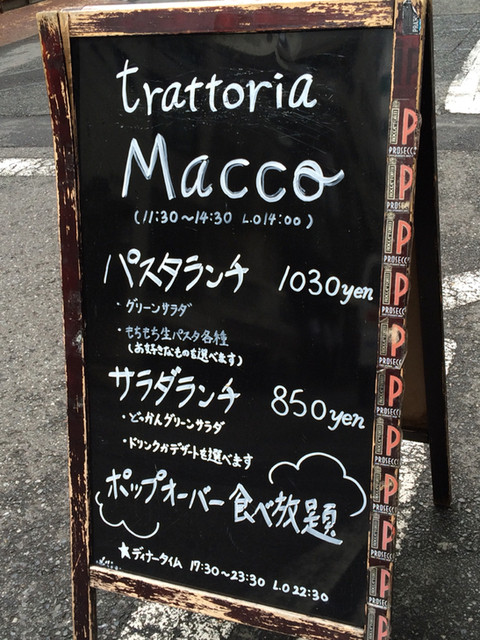 trattoria
Macco
(11:30〜14:30 L.O14:00)
パスタランチ 1030yen
・グリーンサラダ
・もちもち生パスタ各種
(お好きなものを選べます)
サラダランチ 850yen
・どっかんグリーンサラダ
・ドリンクかデザートを選べます
ポップオーバー食べ放題
★ディナータイム 17:30〜23:30 L.O 22:30
P
PROSECCO
P
PROSECCO
P
PROSECCO
P
PROSECCO
P
PROSECCO
P
PROSECCO
P
PROSECCO
P
PROSECCO
P
PROSECCO
P